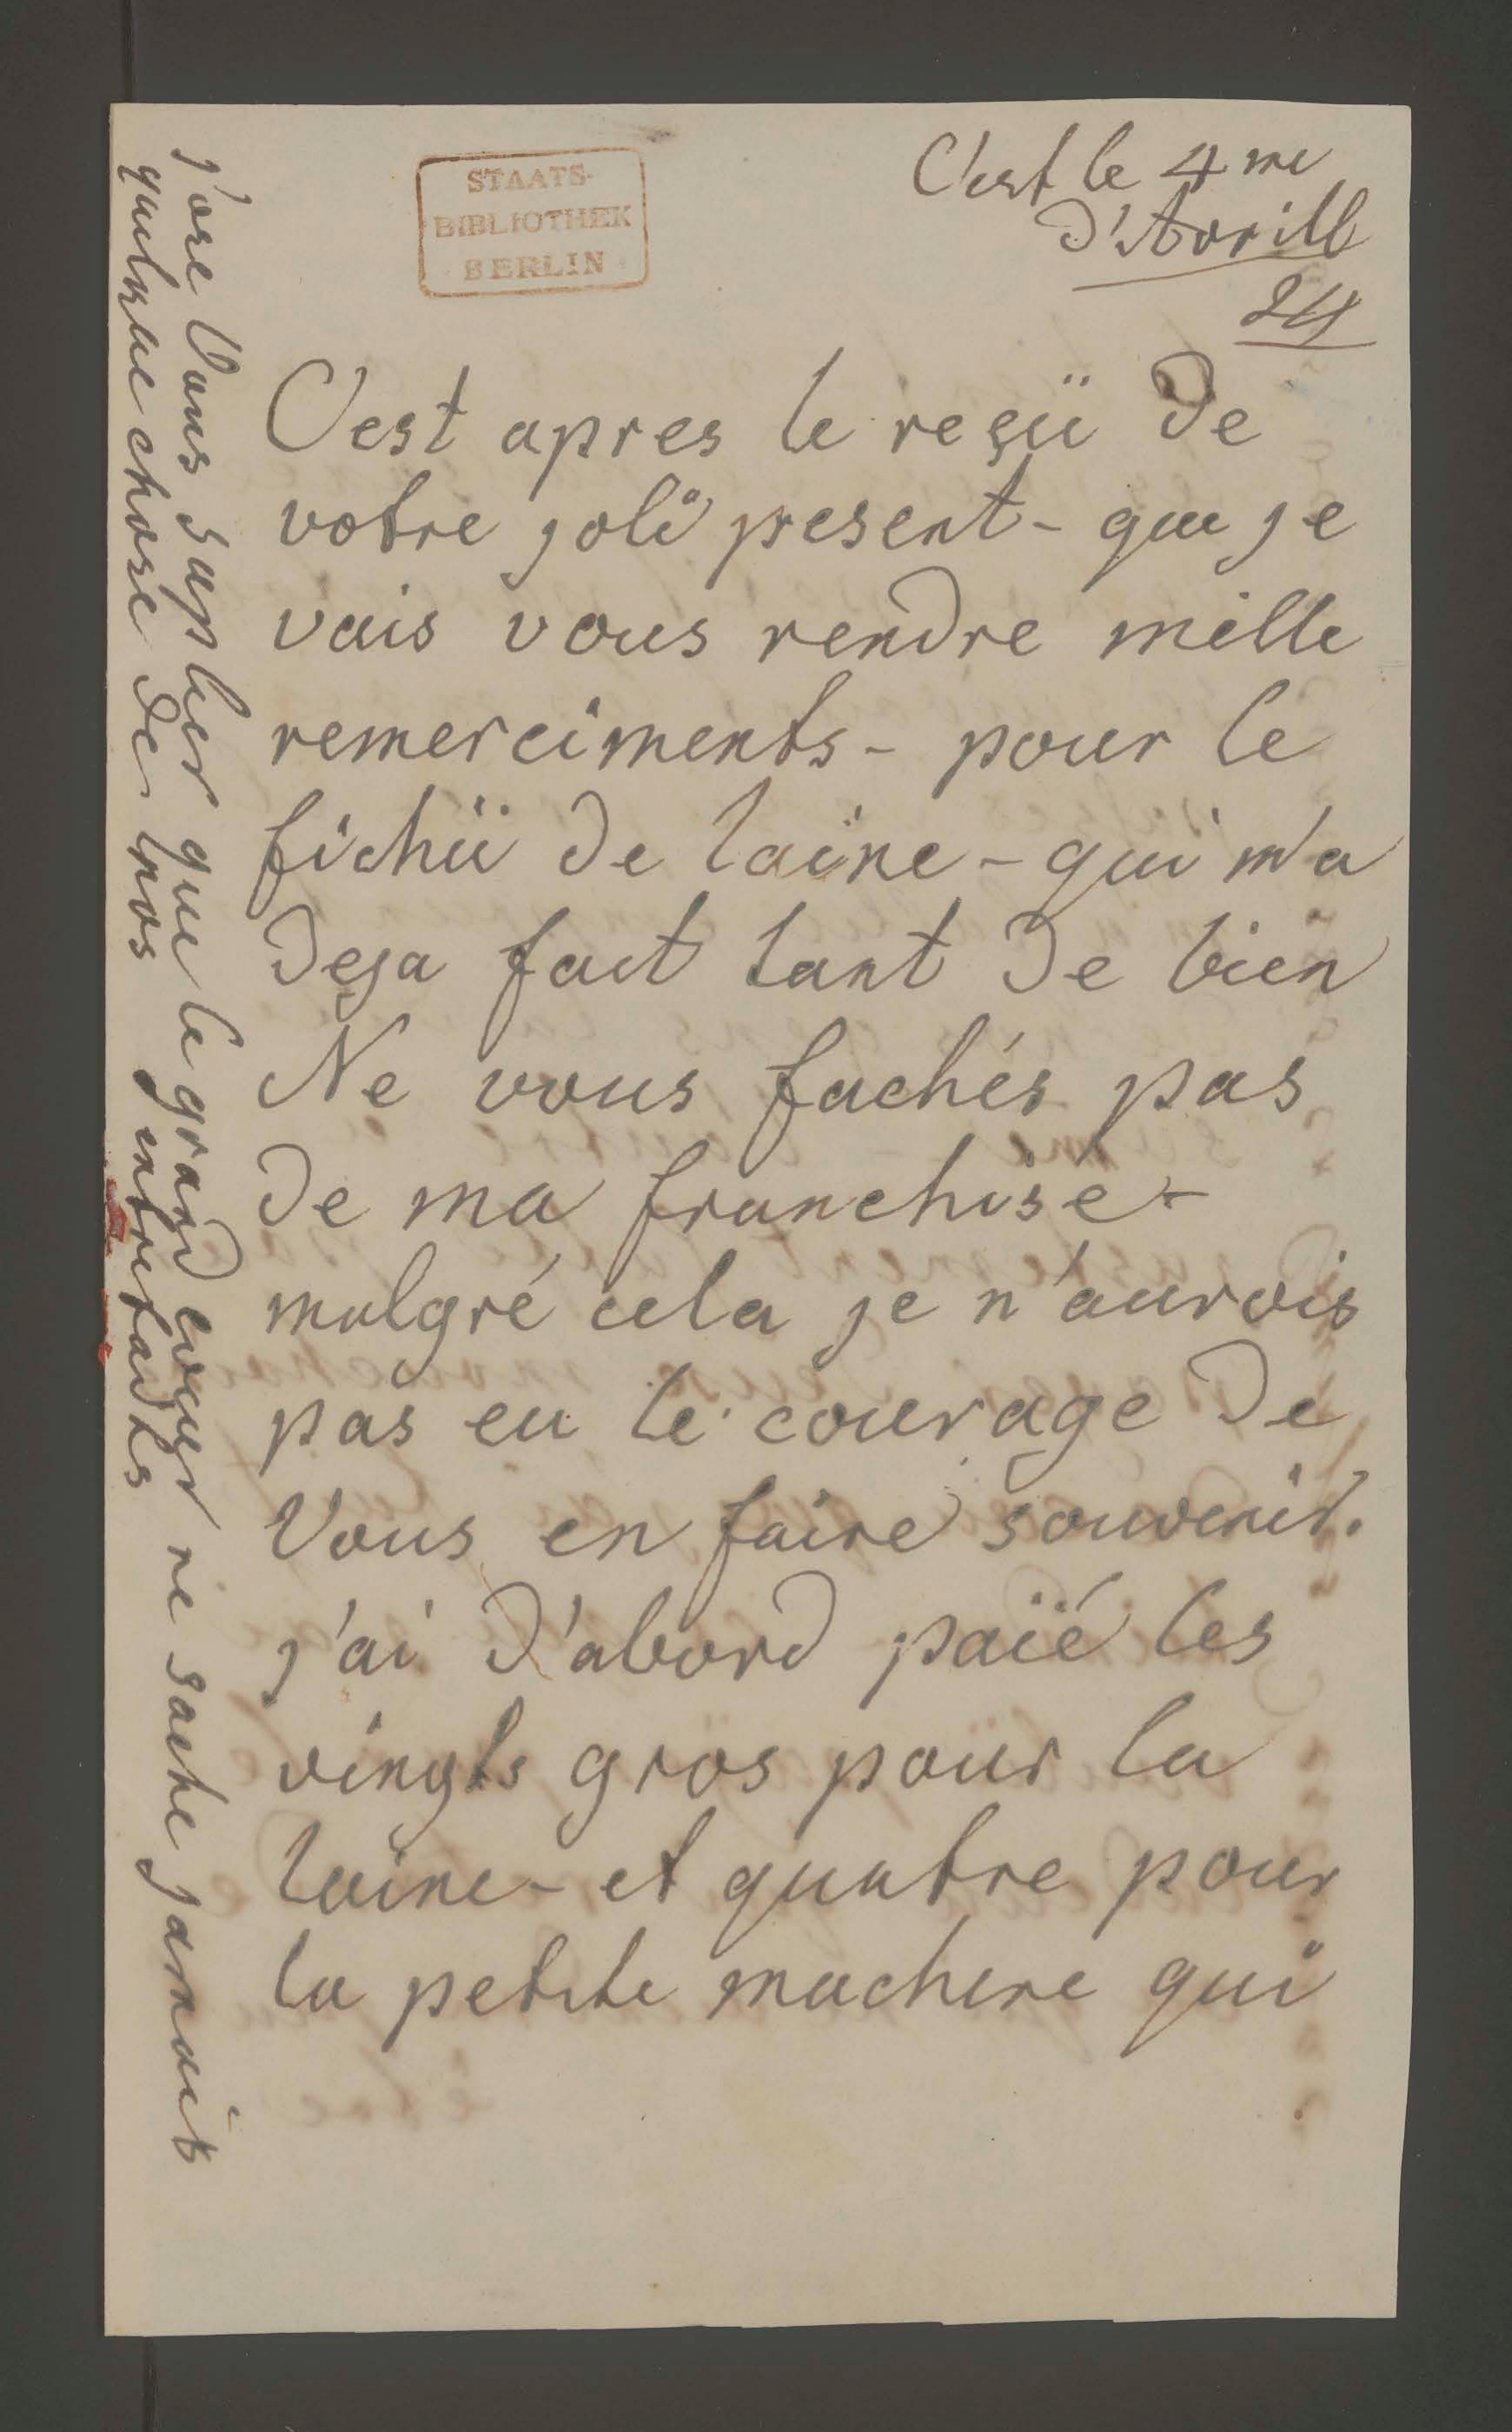 C'est le 4 me
d'Avrill
24
STAATS-
BIBLIOTHEK
BERLIN
C'est apres le reçü de
votre joli present - que je
vais vous rendre mille
remerciments - pour le
fichü de laine - qui m'a
deja fait tant de bien
Ne vous fachés pas
de ma franchise -
malgré cela je n'aurois
pas eu le courage de
Vous en faire souvenir.
j'ai d'abord païé les
vingts gros pour la
laine - et quatre pour
la petite machine qui
j'ose Vous suplier que le grand coeur ne sache jamais
quelque chose de nos